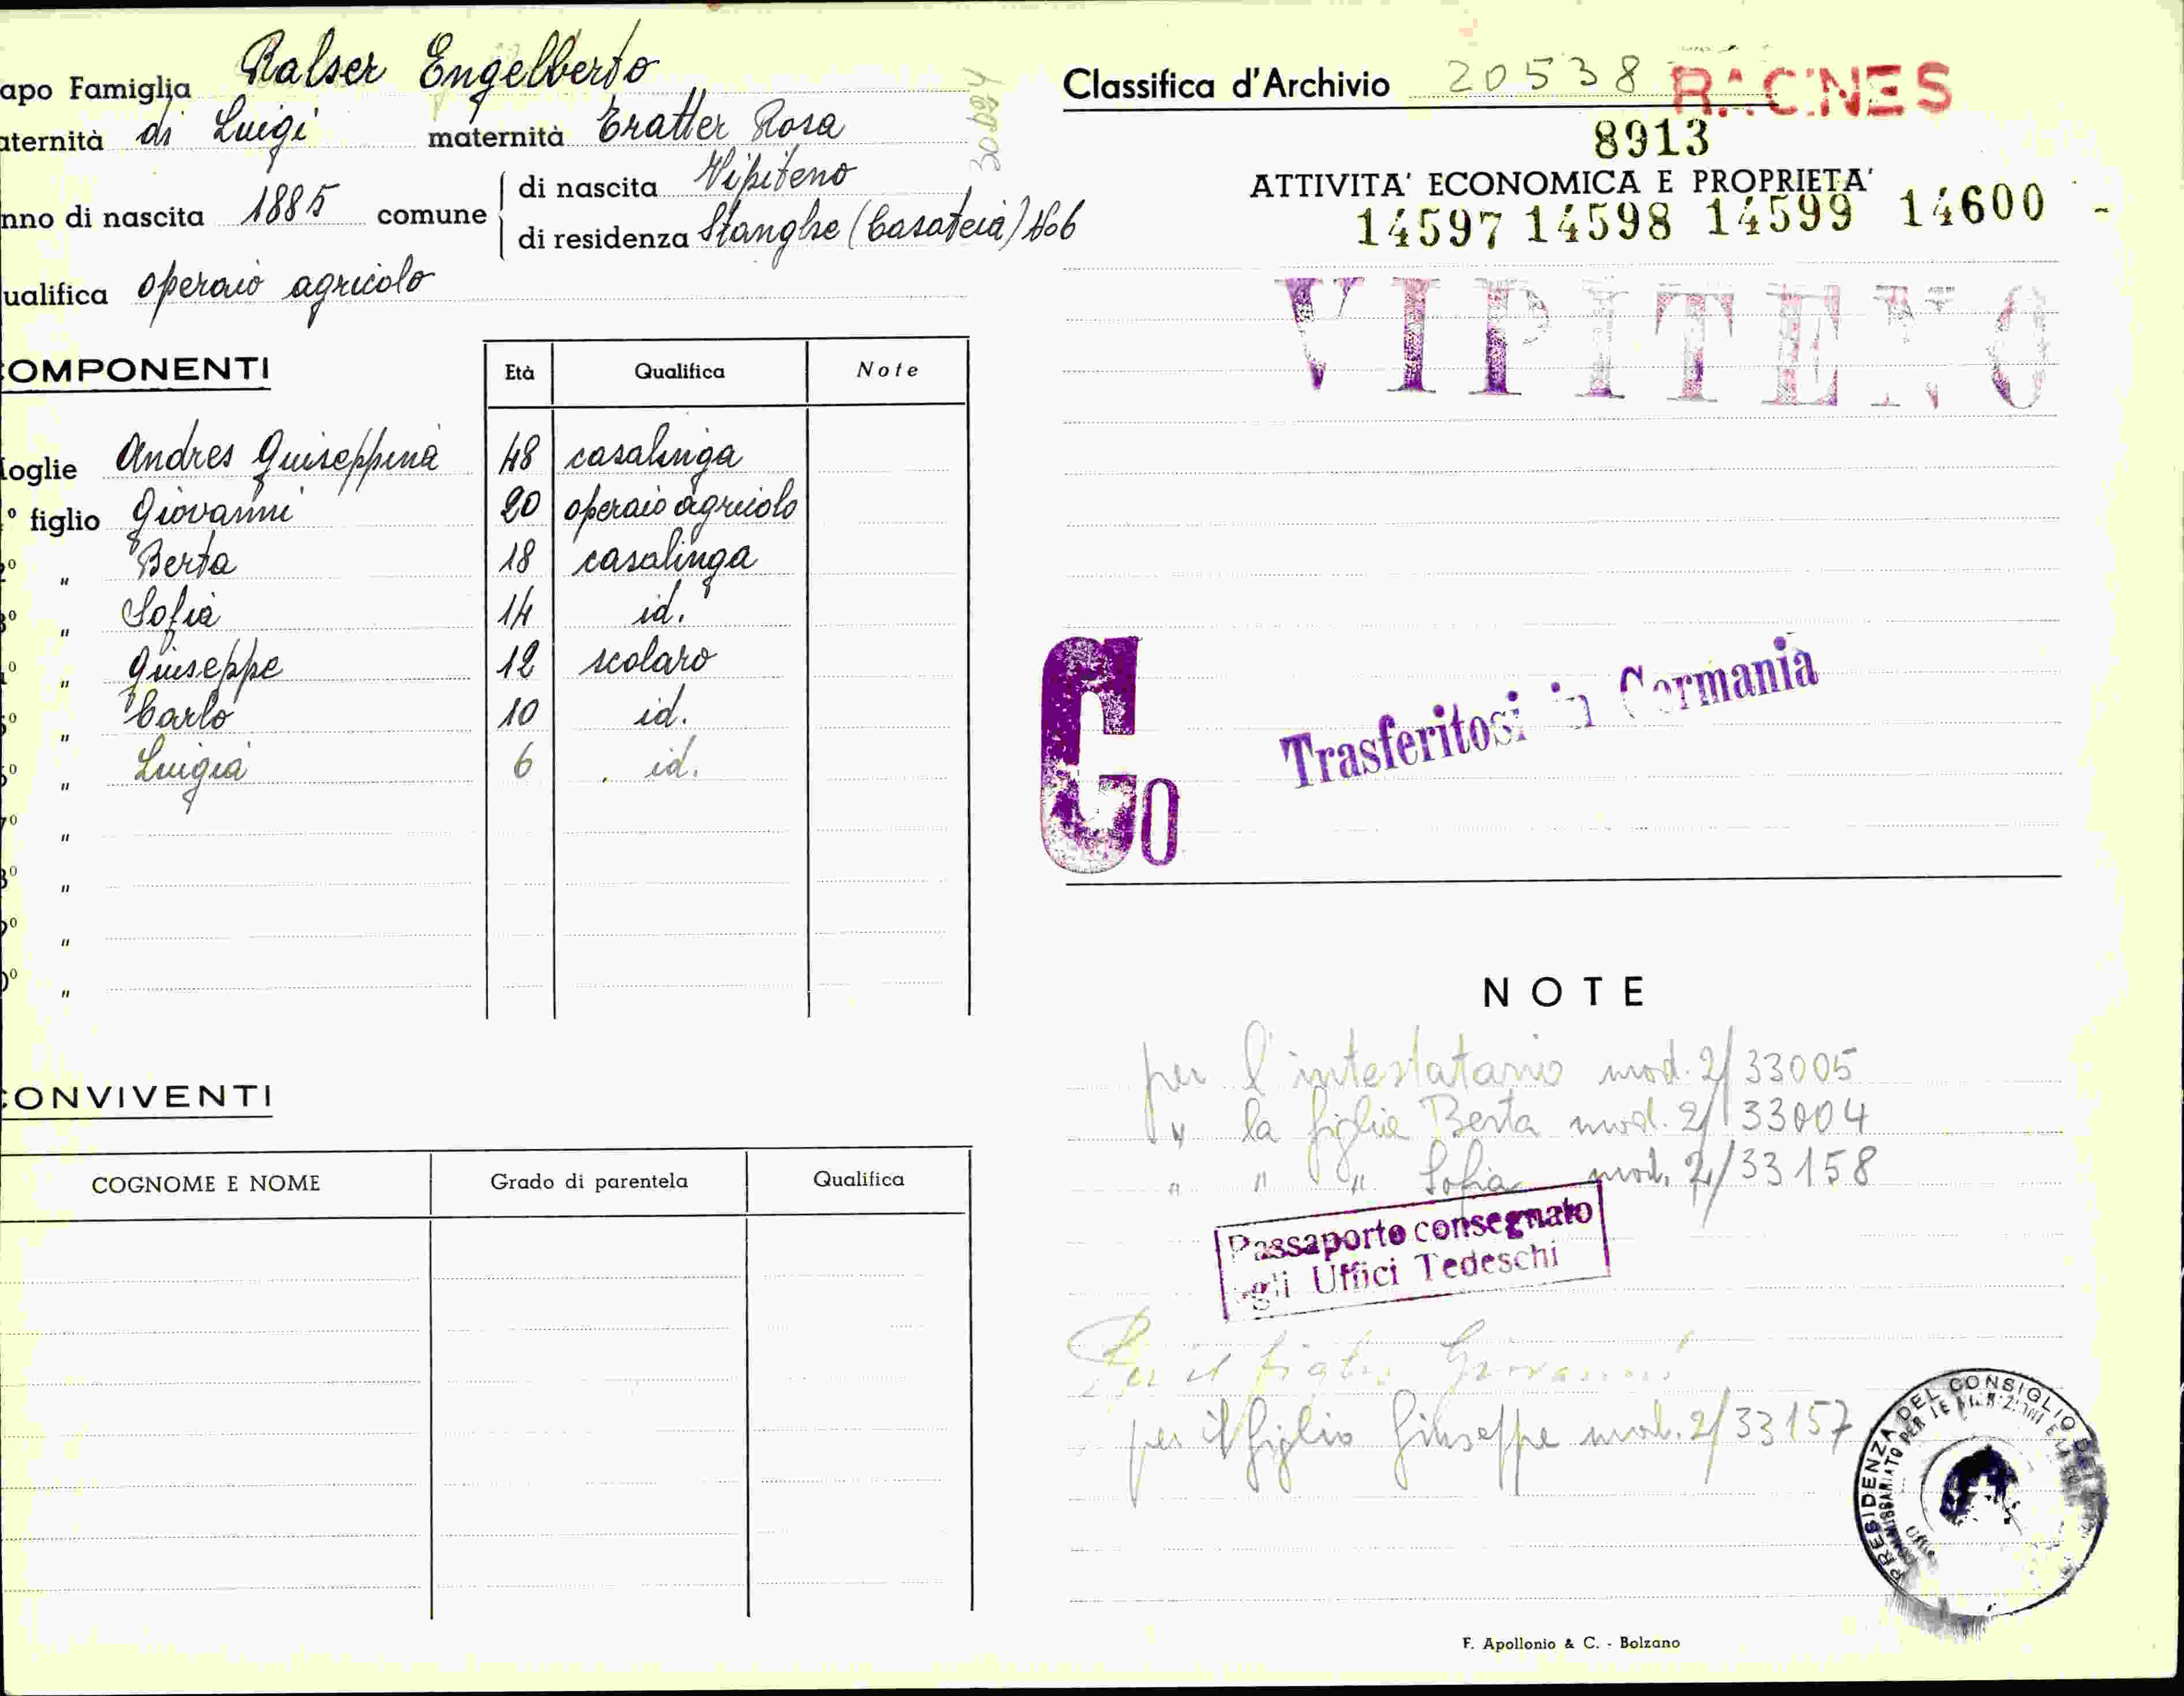 apo Famiglia Ralser Engelberto
aternità di Luigi maternità Tratter Rosa
nno di nascita 1885 comune di nascita Vipiteno
di residenza Stanghe (Casateia) 106
ualifica operaio agricolo
30894
OMPONENTI
Età Qualifica Note
oglie Andres Guiseppina 48 casalinga
° figlio Giovanni 20 operaio agricolo
° " Berta 18 casalinga
° " Sofia 14 id.
° " Guiseppe 12 scolaro
° " Carlo 10 id.
° " Luigia 6 id.
° "
° "
° "
° "
ONVIVENTI
COGNOME E NOME Grado di parentela Qualifica
Classifica d'Archivio 20538 RACINES
8913
ATTIVITA' ECONOMICA E PROPRIETA'
14597 14598 14599 14600 -
VIPITENO
Co
Trasferitosi in Germania
NOTE
per l'intestatario mod. 2/33005
" la figlia Berta mod. 2/33004
" " " Sofia mod. 2/33158
Passaporto consegnato
agli Uffici Tedeschi
Per il figlio Giovanni
per il figlio Giuseppe mod. 2/33157
PRESIDENZA DEL CONSIGLIO
COMMISSARIATO PER LE MIGRAZIONI E
F. Apollonio & C. - Bolzano